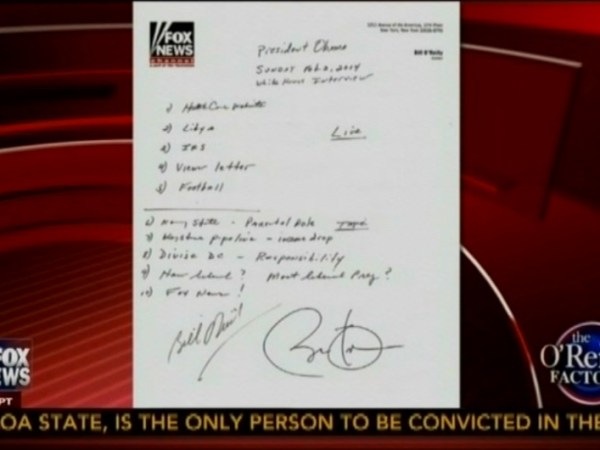 FOX
NEWS
channel
1211 Avenue of the Americas
New York, New York
Bill O'Reilly
President Obama
Sunday Feb 2, 2014
White House Interview
1) Health Care Website
2) Libya
Live
3) IRS
4) Viewer letter
5) Football
6) Nanny State - Parental Role
Tape
7) Keystone pipeline - income drop
8) Divisive DC - Responsibility
9) How liberal? Most liberal Prez?
10) Fox News!
FOX
NEWS
PT
the
O'Re
FACTO
OA STATE, IS THE ONLY PERSON TO BE CONVICTED IN THE